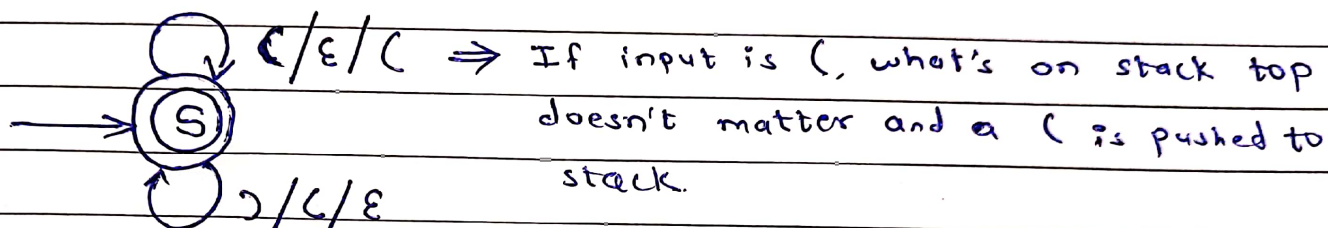 (/ε/( ⇒ If input is (, what's on stack top
S doesn't matter and a ( is pushed to
stack.
)/(/ε